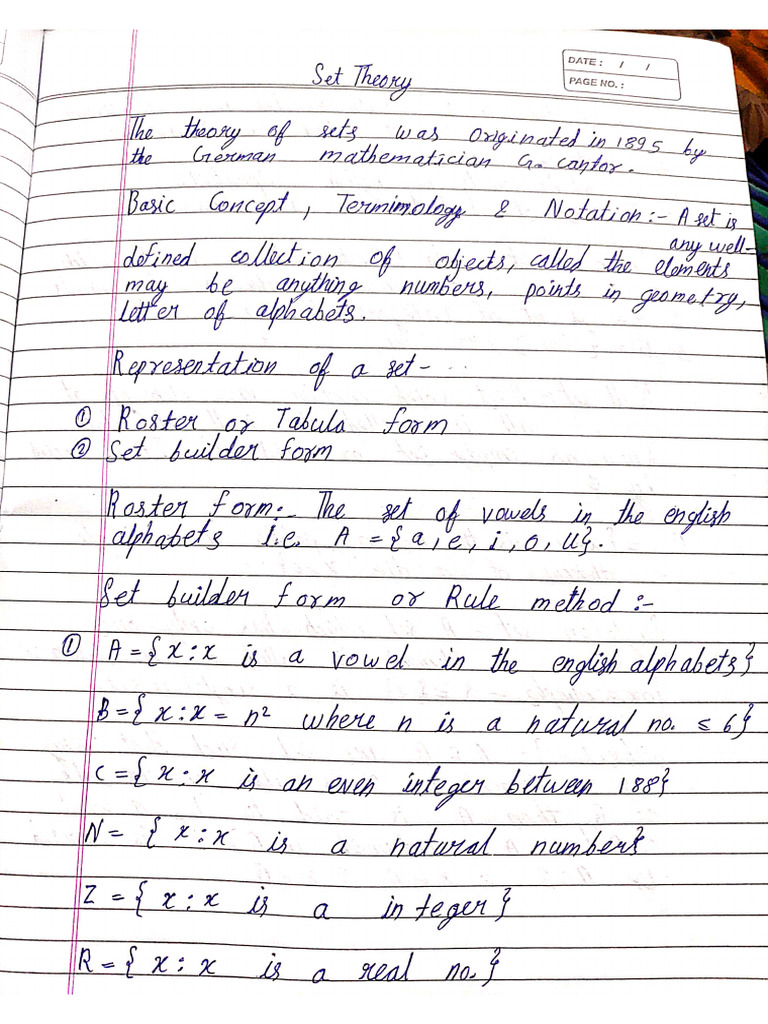 Set Theory
DATE : / /
PAGE NO. :
The theory of sets was originated in 1895 by
the German mathematician G. cantor.
Basic Concept, Termimology & Notation:- A set is
any well-
defined collection of objects, called the elements
may be anything numbers, points in geometry,
letter of alphabets.
Representation of a set-
① Roster or Tabula form
② Set builder form
Roster form:- The set of vowels in the english
alphabets i.e. A = {a, e, i, o, u}.
Set builder form or Rule method :-
① A = {x : x is a vowel in the english alphabets}
B = {x : x = n² where n is a natural no. ≤ 6}
C = {x : x is an even integer between 188}
N = {x : x is a natural numbers}
Z = {x : x is a integer}
R = {x : x is a real no.}